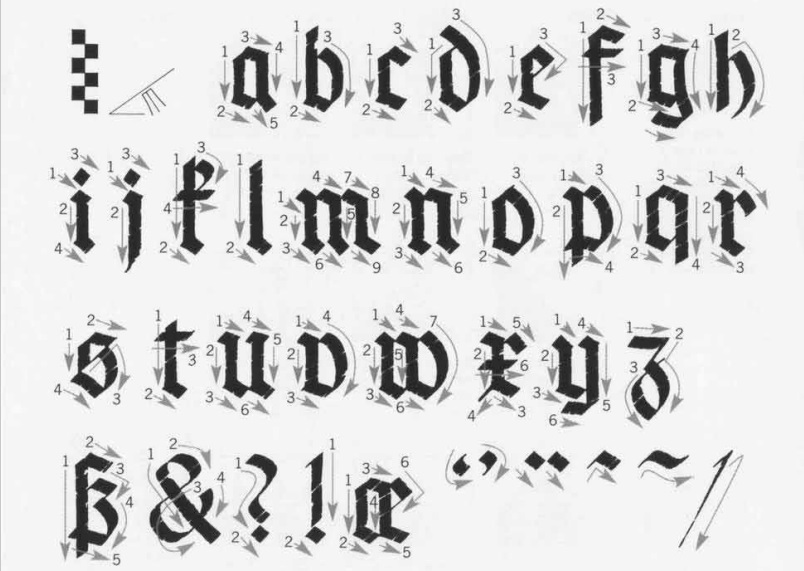 a b c d e f g h
i j k l m n o p q r
s t u v w x y z
ß & ? ! æ “ ¨ ˆ ~ /